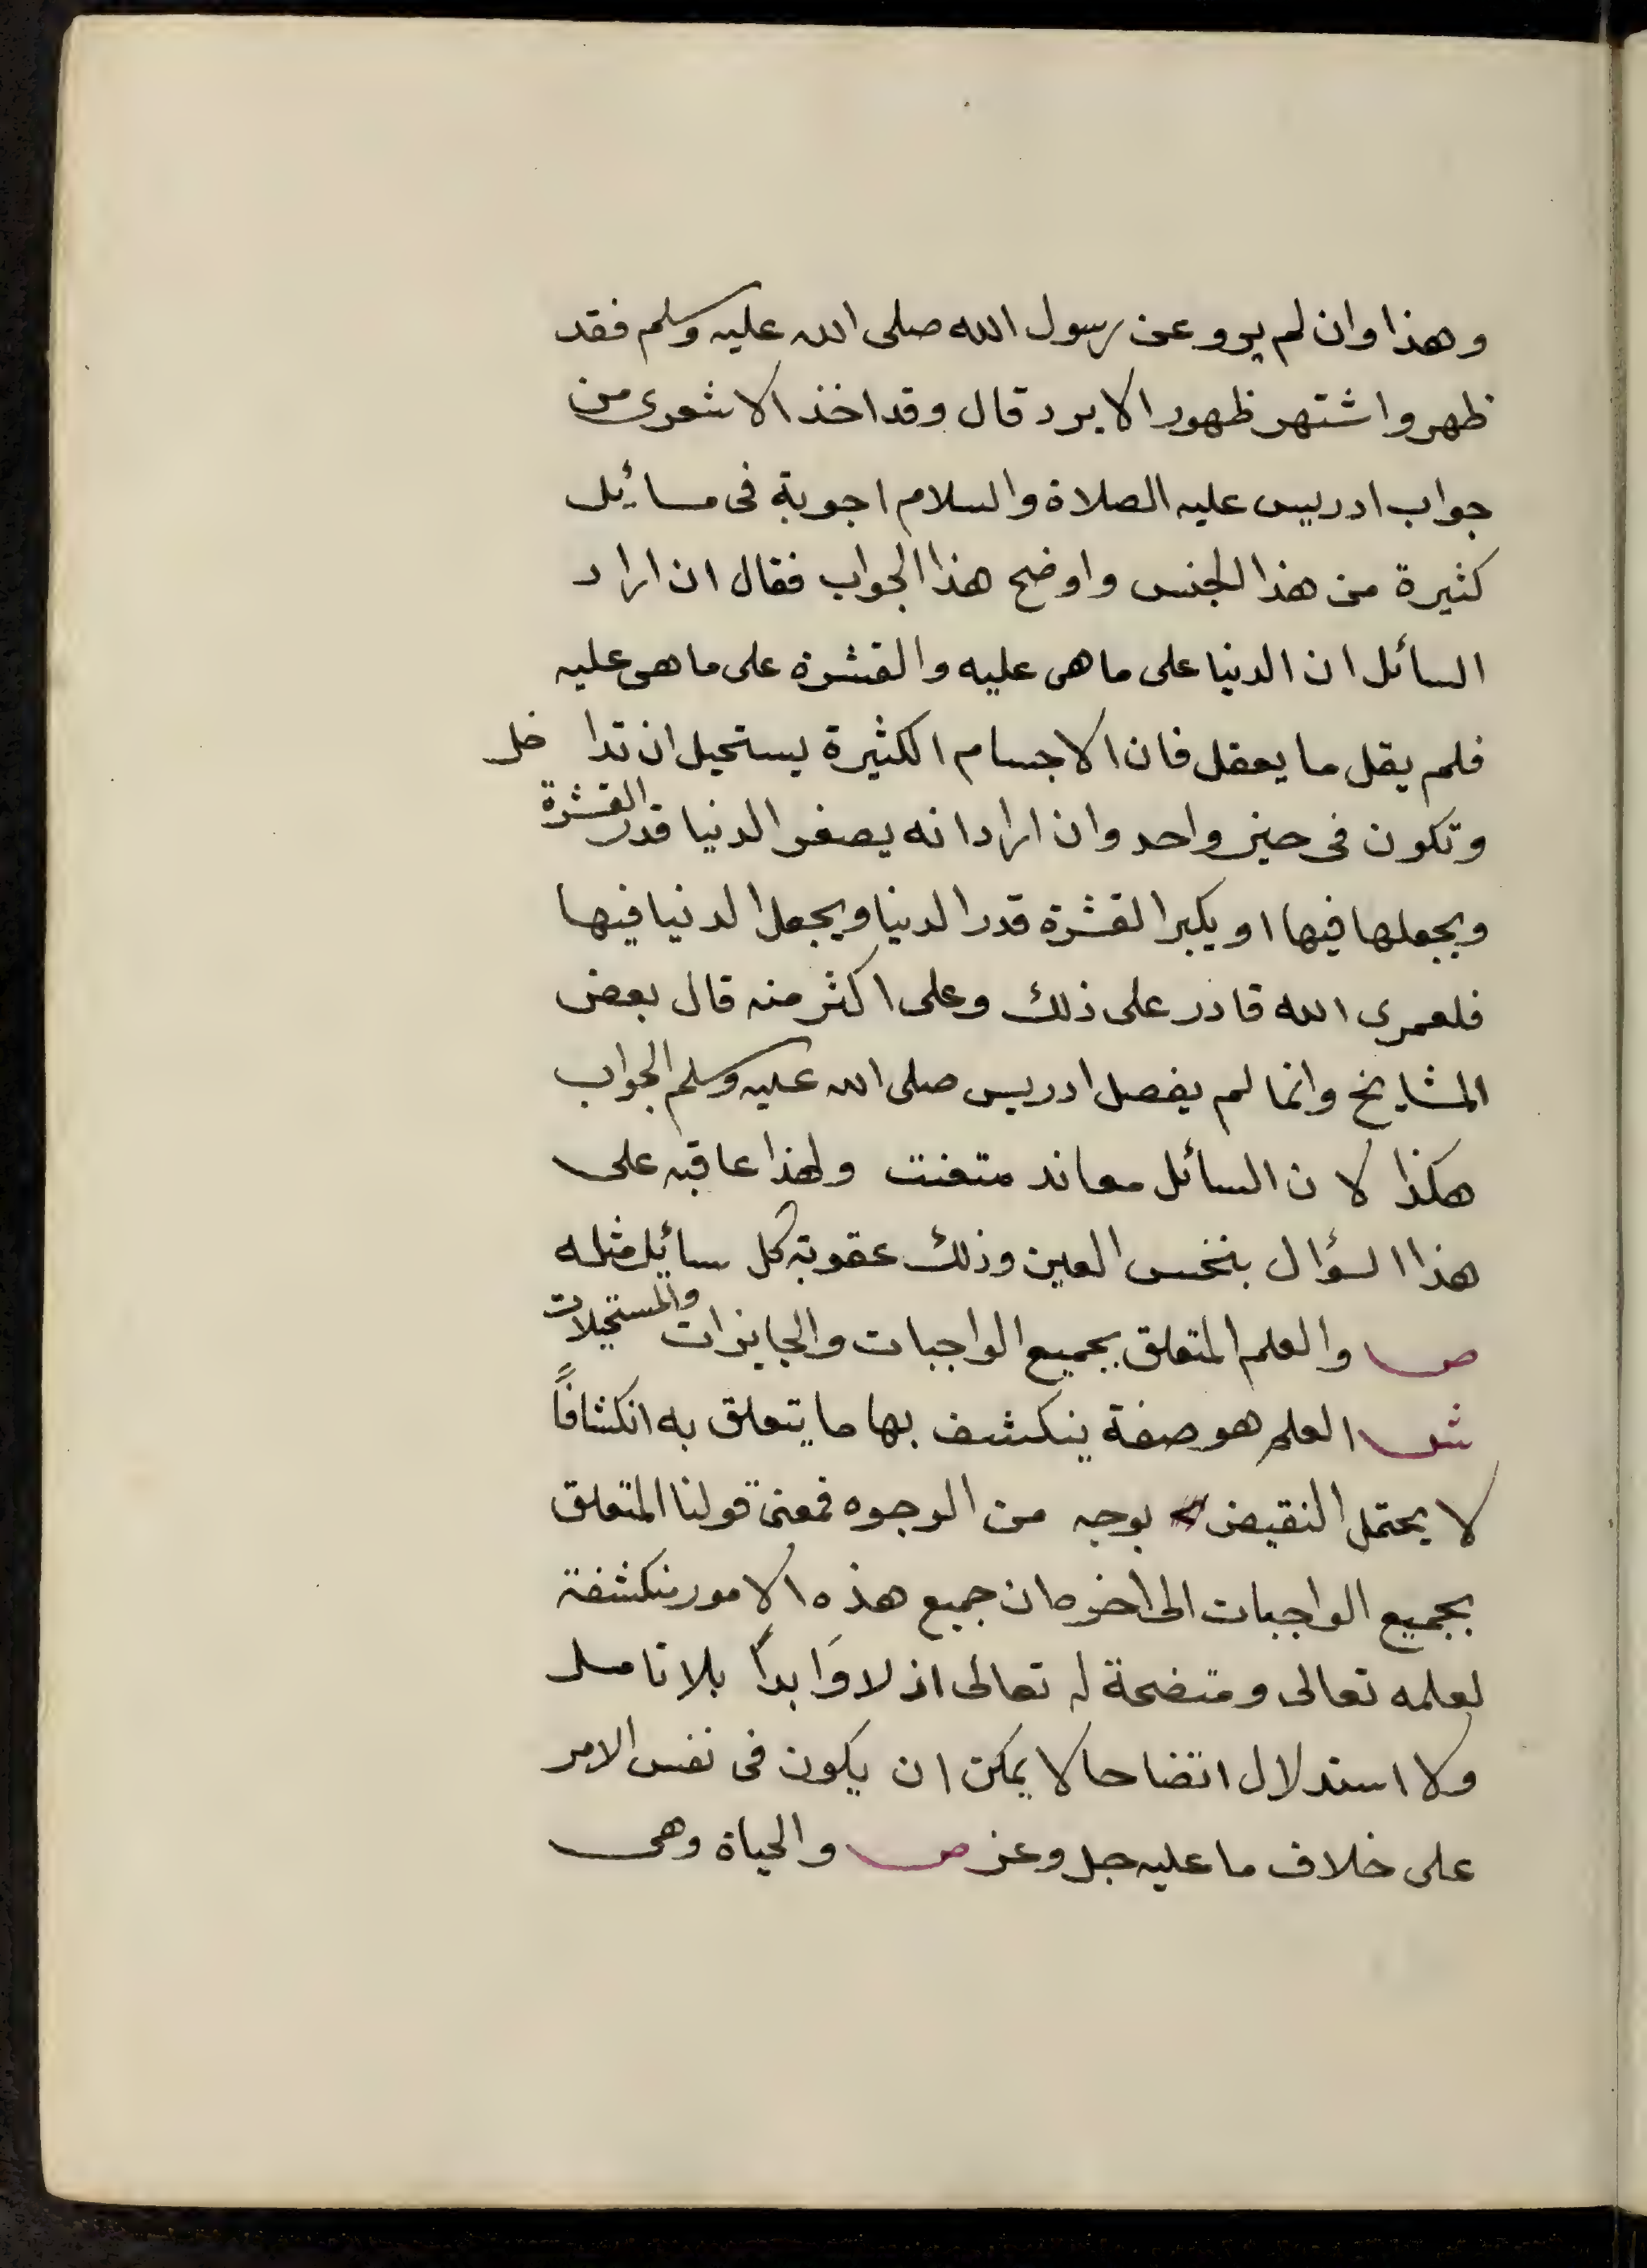 وهذا وان لم يرو عن رسول الله صلى الله عليه وسلم فقد
ظهر واشتهر ظهورا لا يرد قال وقد اخذ الاشعرى من
جواب ادريس عليه الصلاة والسلام اجوبة فى مسائيل
كثيرة من هذا الجنس واوضح هذا الجواب فقال ان اراد
السائل ان الدنيا على ما هى عليه والقشرة على ما هى عليه
فلم يقل ما يعقل فان الاجسام الكثيرة يستحيل ان تداخل
وتكون فى حيز واحد وان اراد انه يصغر الدنيا قدر القشرة
ويجعلها فيها او يكبر القشرة قدر الدنيا ويجعل الدنيا فيها
فلعمرى الله قادر على ذلك وعلى اكثر منه قال بعض
المشايخ وانما لم يفصل ادريس صلى الله عليه وسلم الجواب
هكذا لان السائل معاند متعنت ولهذا عاقبه على
هذا السؤال بنخس العين وذلك عقوبة كل سائيل مثله
ص والعلم المتعلق بجميع الواجبات والجايزات والمستحيلات
ش العلم هو صفة ينكشف بها ما يتعلق به انكشافاً
لا يحتمل النقيض بوجه من الوجوه فمعنى قولنا المتعلق
بجميع الواجبات الى اخره ان جميع هذه الامور منكشفة
لعلمه تعالى ومتضحة له تعالى ازلا وابداً بلا تامل
ولا استدلال اتضاحا لا يمكن ان يكون فى نفس الامر
على خلاف ما عليه جل وعز ص والحياة وهى